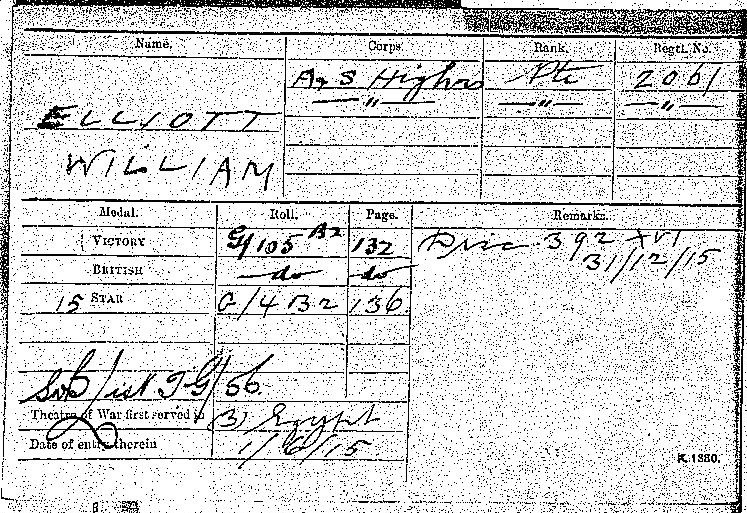 Name. Corps. Rank. Regtl. No.
A & S Highrs Pte 2061
ELLIOTT — " — — " — — " —
WILLIAM
Medal. Roll. Page. Remarks.
VICTORY G/105 B2 132 Disc 392 XVI
BRITISH do do 31/12/15
15 STAR G/4 B2 136
/56.
Theatre of War first served in (3) Egypt
Date of entry therein 1/6/15
K. 1380.